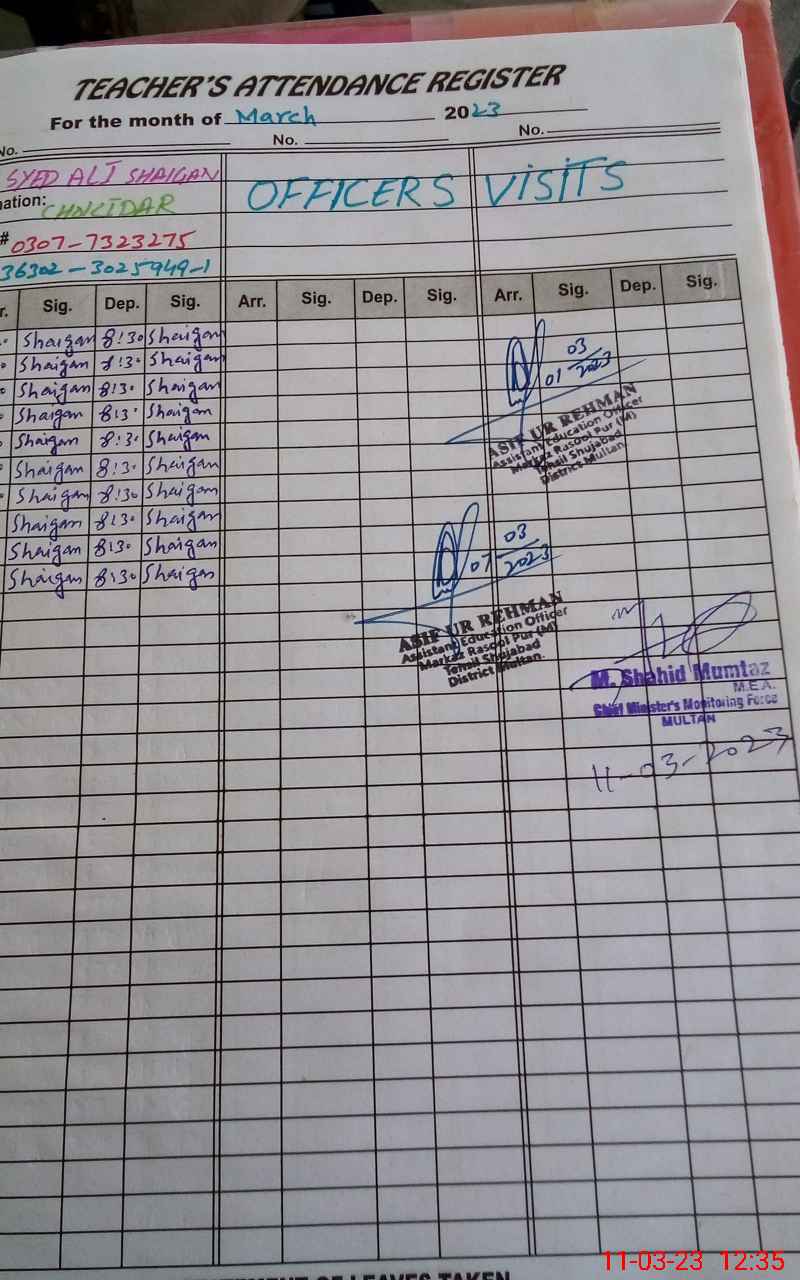 TEACHER'S ATTENDANCE REGISTER
For the month of March 2023
No. No. No.
SYED ALI SHAIGAN OFFICERS VISITS
nation: CHNCIDAR
# 0307-7323275
36302-3025949-1
r. Sig. Dep. Sig. Arr. Sig. Dep. Sig. Arr. Sig. Dep. Sig.
Shaigan 8:30 Shaigan
Shaigan 8:30 Shaigan
Shaigan 8:30 Shaigan
Shaigan 8:30 Shaigan
Shaigan 8:30 Shaigan
Shaigan 8:30 Shaigan
Shaigan 8:30 Shaigan
Shaigan 8:30 Shaigan
Shaigan 8:30 Shaigan
Shaigan 8:30 Shaigan
01 03 2023
ASIF UR REHMAN
Assistant Education Officer
Markaz Rasool Pur (M)
Tehsil Shujabad
District Multan.
07 03 2023
ASIF UR REHMAN
Assistant Education Officer
Markaz Rasool Pur (M)
Tehsil Shujabad
District Multan.
M. Shahid Mumtaz
M.E.A.
Chief Minister's Monitoring Force
MULTAN
11-03-2023
OF LEAVES TAKEN
11-03-23 12:35